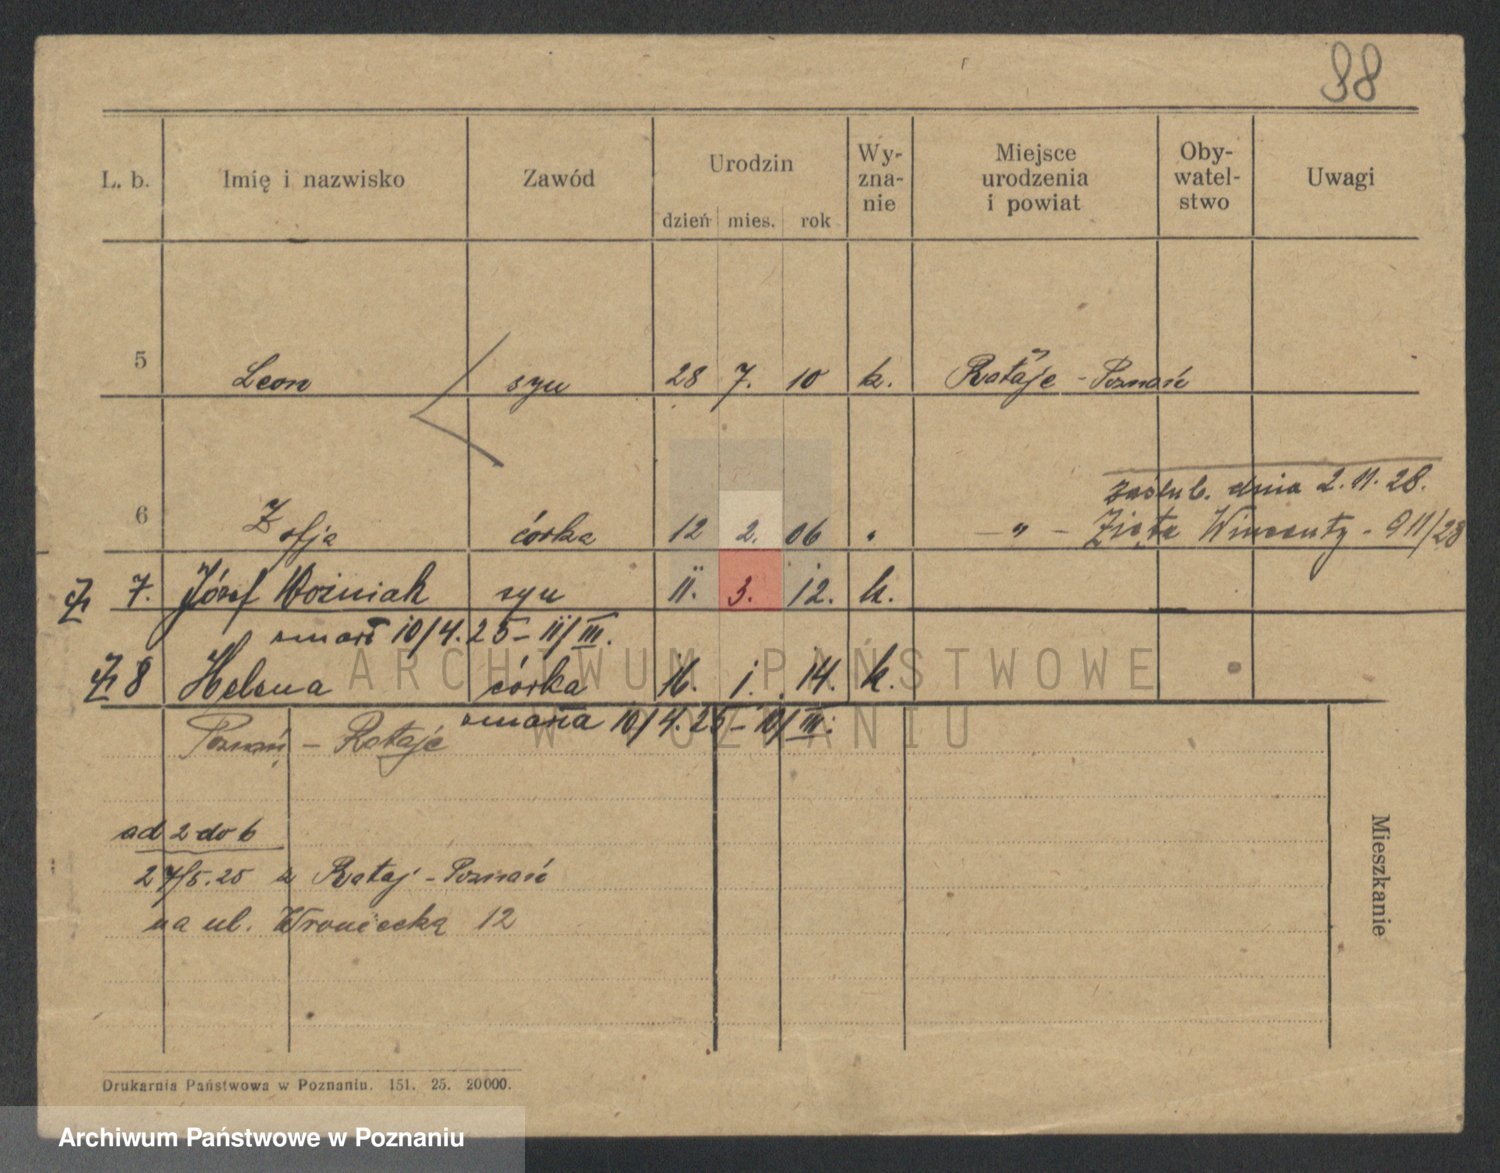 98
L. b. Imię i nazwisko Zawód Urodzin dzień mies. rok Wy-zna-nie Miejsce urodzenia i powiat Oby-watel-stwo Uwagi
5 Leon syn 28 7. 10 k. Rataje - Poznań
zaślub. dnia 2.11.28.
6 Zofja córka 12 2. 06 " — " — Zięta Wincenty - 911/28
7. Józef Woźniak syn 11. 3. 12. k.
zmarł 10/4.25 - 11/III.
8 Helena córka 16. 1. 14. k.
zmarła 10/4.25 - 10/III.
Poznań - Rataje
ad 2 do 6
27/5.25 z Rataj - Poznań
na ul. Wroniecką 12
Mieszkanie
Drukarnia Państwowa w Poznaniu. 151. 25. 20000.
ARCHIWUM PAŃSTWOWE
W POZNANIU
Archiwum Państwowe w Poznaniu